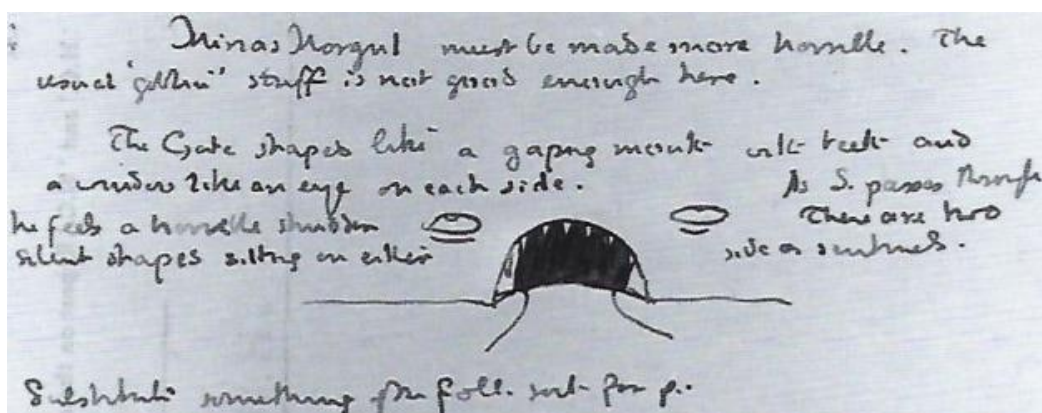 Minas Morgul must be made more horrible. The
usual 'goblin' stuff is not good enough here.
The Gate shapes like a gaping mouth with teeth and
a window like an eye on each side. As S. passes through
he feels a horrible shudder. There are two
silent shapes sitting on either side as sentinels.
Substitute something of the foll. sort for p.